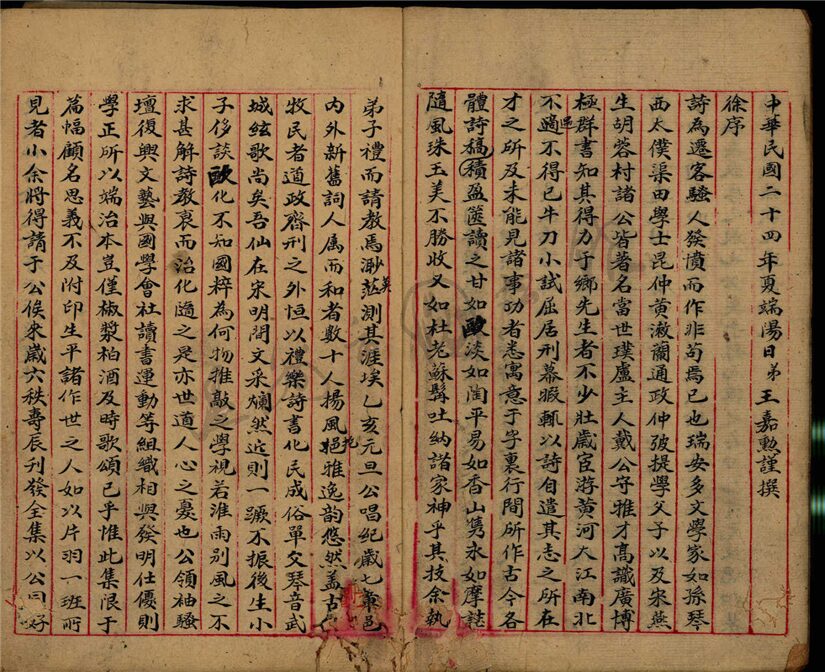 中華民國二十四年夏端陽日弟王嘉勲謹撰
徐序
詩為遷客騷人發憤而作非苟焉已也瑞安多文學家如孫琴
西太僕渠田學士昆仲黄漱蘭通政仲弢提學父子以及宋燕
生胡蓉村諸公皆著名當世璞盧主人戴公守雅才髙識廣博
極群書知其得力于鄉先生者不少壯歲宦游黄河大江南北
不適不得已牛刀小試屈居刑幕暇輒以詩自遣其志之所在
才之所及未能見諸事功者悉寓意于字裏行間所作古今各
體詩稿積盈篋讀之甘如歐淡如陶平易如香山雋永如摩詰
隨風珠玉美不勝收又如杜老蘇髯吐納諸家神乎其技余執
弟子禮而請教焉渺茫莫測其涯埃乙亥元旦公唱紀歲七章邑
内外新舊詞人属而和者數十人揚風扢雅逸韵悠然盖古
牧民者道政齋刑之外恒以禮樂詩書化民成俗單父琴音武
城絃歌尚矣吾仙在宋明間文采爛然近則一蹶不振後生小
子侈談歐化不知國粹為何物推敲之學視若淮雨别風之不
求甚解詩教衰而治化隨之是亦世道人心之憂也公領袖騷
壇復興文藝與國學會社讀書運動等組織相與發明仕優則
學正所以端治本豈僅椒漿柏酒及時歌頌已乎惟此集限于
篇幅顧名思義不及附印生平諸作世之人如以片羽一班所
見者小余將得請于公俟來歲六秩壽辰刊發全集以公同好